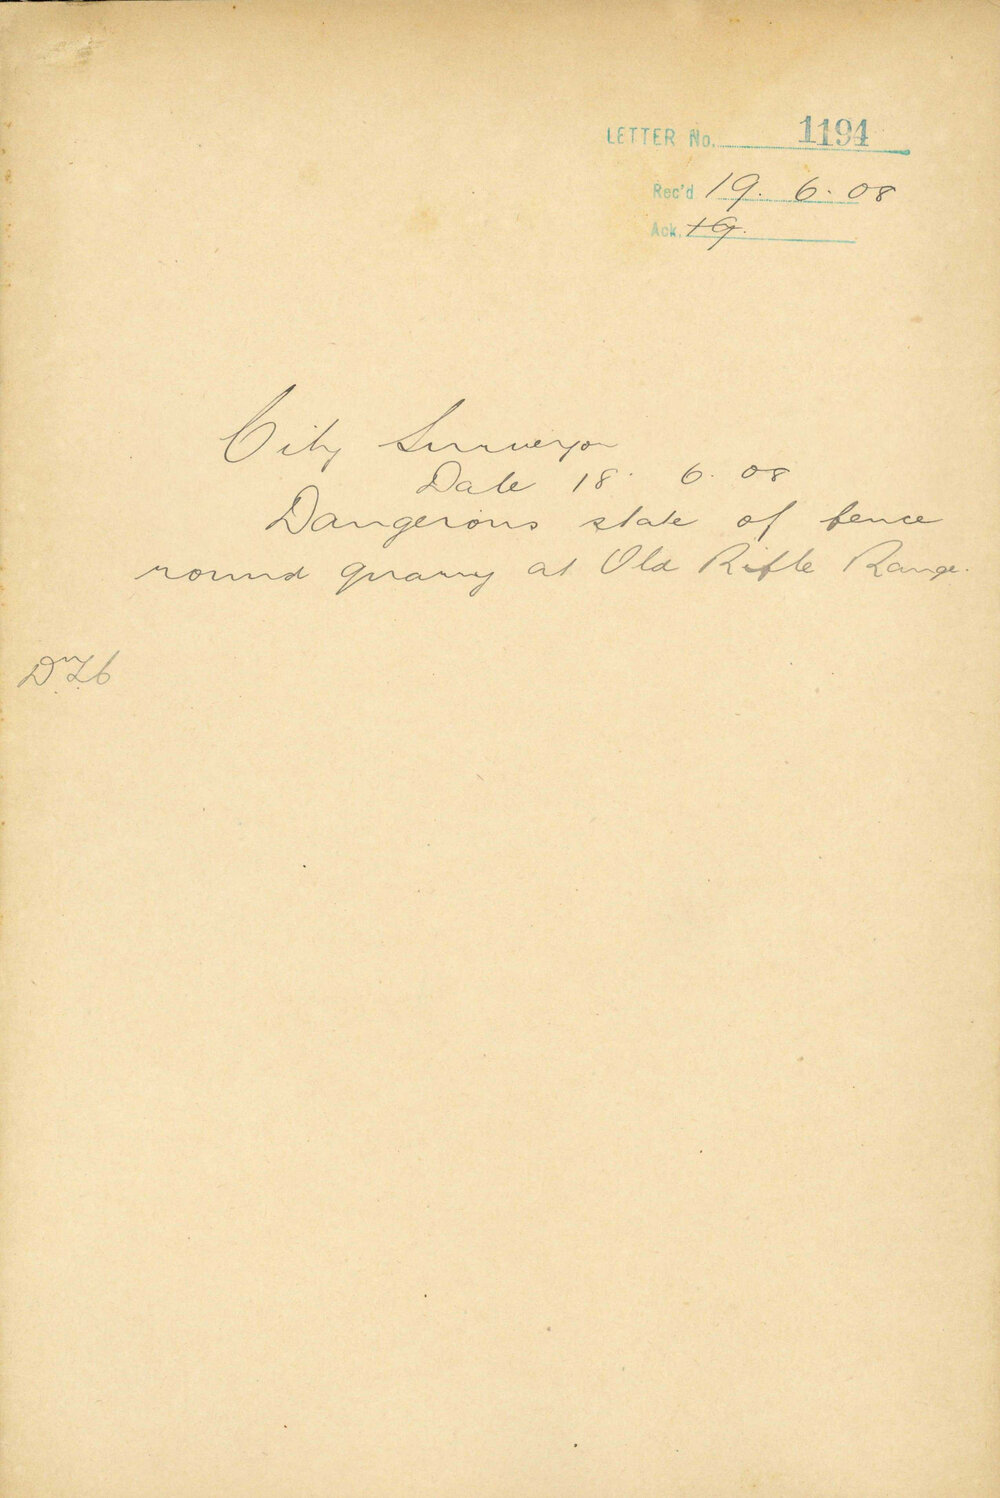 LETTER No. 1194
Rec'd 19. 6. 08
Ack. 19.
City Surveyor
Date 18. 6. 08
Dangerous state of fence
round quarry at Old Rifle Range.